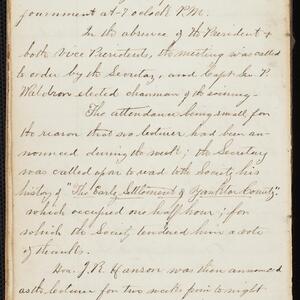 journment at 7 oclock P.M.
In the absence of the President &
both Vice Presidents, the meeting was called
to order by the Secretary, and Capt. Geo. P.
Waldron elected chairman of the evening.
The attendance being small for
the reason that no lecturer had been an-
nounced during the week; the Secretary
was called upon to read the Society his
history of "The Early Settlement of Yankton County"
which occupied one half hour; for
which the Society tendered him a vote
of thanks.
Hon. J. R. Hanson was then announced
as the lecturer for two weeks from to night